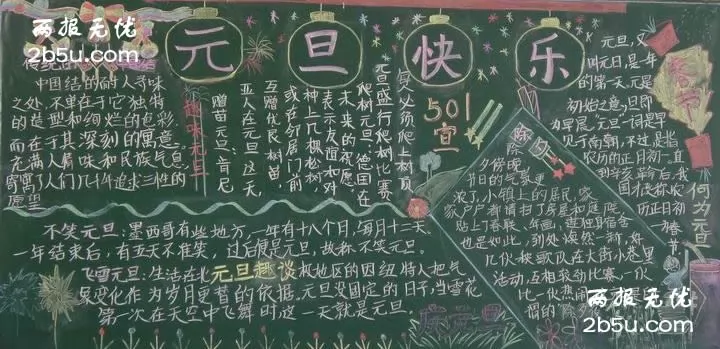 两报无忧
2b5u.com
元旦快乐
中国结的耐人寻味
之处,不单在于它独特
的造型和绚烂的色彩.
而在于其深刻的寓意.
充满人情味和民族气息.
愿望
趣味元旦
赠苗元旦:肯尼
亚人在元旦这天
互赠优良树苗,
或在邻居门前
种上几棵松树,
表示友谊和对
未来的祝愿.
爬树元旦:德国在
元旦盛行爬树比赛
501
宣
元旦,又
叫元日,是一年
的第一天.元是
初始之意,旦即
为早晨."元旦"一词是早
见于南朝,不过,是指
农历的正月初一.直
到辛亥革命后,我
何为元旦
春节
除夕
除
夕傍晚,
节日的气氛更
浓了,小镇上的居民,家
家户户都清扫了房屋和庭院,
贴上了春联、年画,连独身宿舍
也是如此,到处焕然一新,好
几伙秧歌队在大街小巷里
活动,互相鼓劲比赛一伙
比一伙热闹
不笑元旦:墨西哥有些地方,一年有十八个月,每月十二天.
一年结束后,有五天不准笑,过后便是元旦,故称不笑元旦.
元旦趣谈
飞雪元旦:生活在北极地区的因纽特人把气
象变化作为岁月更替的依据.元旦没固定的日子,当雪花
第一次在天空中飞舞时这一天就是元旦.
两报无忧
2b5u.com